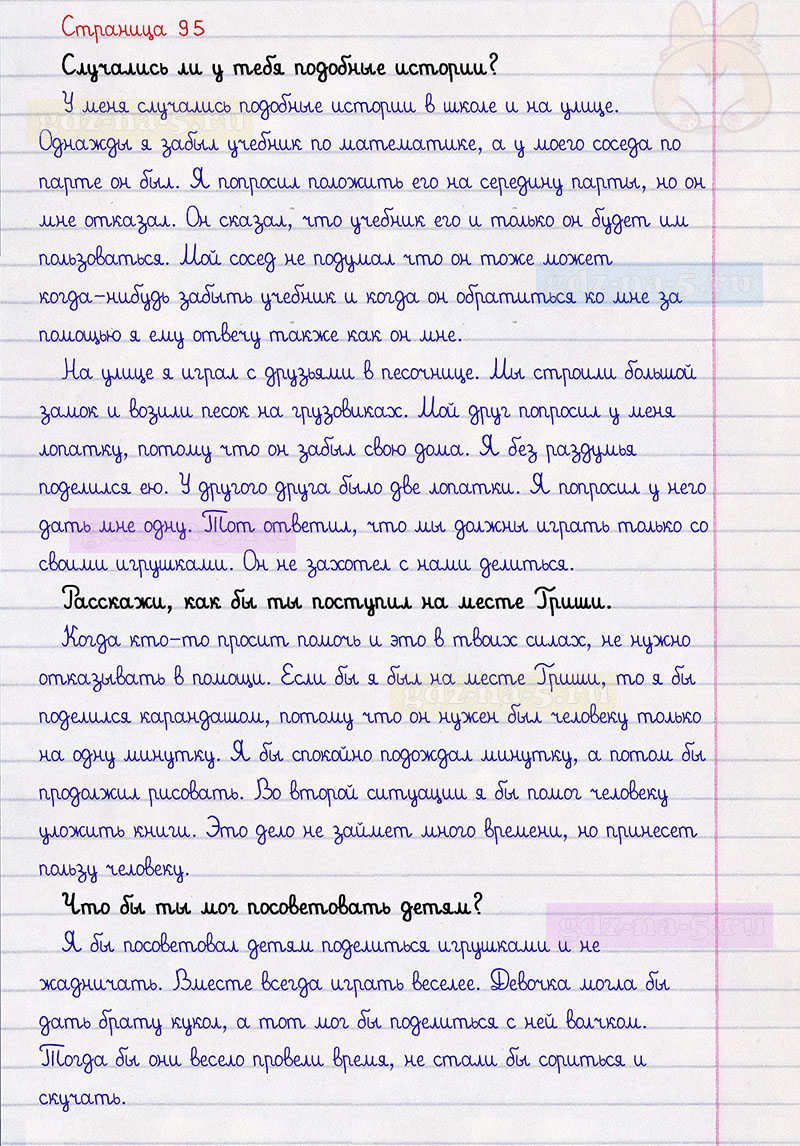 Страница 95
Случались ли у тебя подобные истории?
У меня случались подобные истории в школе и на улице.
Однажды я забыл учебник по математике, а у моего соседа по
парте он был. Я попросил положить его на середину парты, но он
мне отказал. Он сказал, что учебник его и только он будет им
пользоваться. Мой сосед не подумал что он тоже может
когда-нибудь забыть учебник и когда он обратиться ко мне за
помощью я ему отвечу также как он мне.
На улице я играл с друзьями в песочнице. Мы строили большой
замок и возили песок на грузовиках. Мой друг попросил у меня
лопатку, потому что он забыл свою дома. Я без раздумья
поделился ею. У другого друга было две лопатки. Я попросил у него
дать мне одну. Тот ответил, что мы должны играть только со
своими игрушками. Он не захотел с нами делиться.
Расскажи, как бы ты поступил на месте Гриши.
Когда кто-то просит помочь и это в твоих силах, не нужно
отказывать в помощи. Если бы я был на месте Гриши, то я бы
поделился карандашом, потому что он нужен был человеку только
на одну минутку. Я бы спокойно подождал минутку, а потом бы
продолжил рисовать. Во второй ситуации я бы помог человеку
уложить книги. Это дело не займет много времени, но принесет
пользу человеку.
Что бы ты мог посоветовать детям?
Я бы посоветовал детям поделиться игрушками и не
жадничать. Вместе всегда играть веселее. Девочка могла бы
дать брату кукол, а тот мог бы поделиться с ней волчком.
Тогда бы они весело провели время, не стали бы сориться и
скучать.
gdz-na-5.ru
gdz-na-5.ru
gdz-na-5.ru
gdz-na-5.ru
gdz-na-5.ru